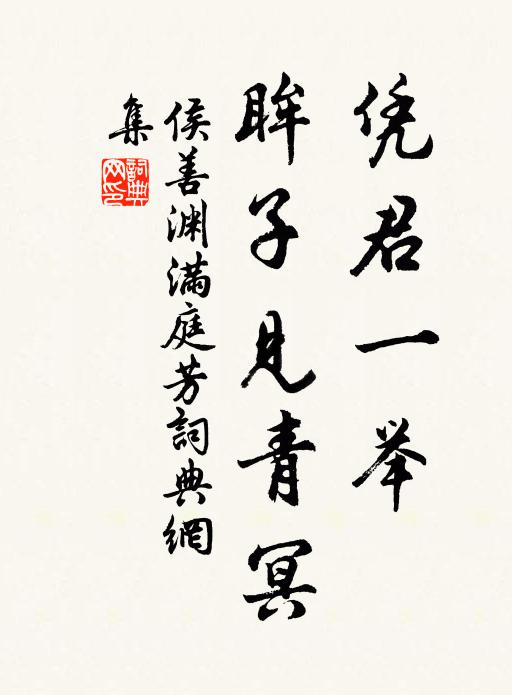 凭君一举
眸子见青冥
侯善渊满庭芳詞典網
集
詞典
网印